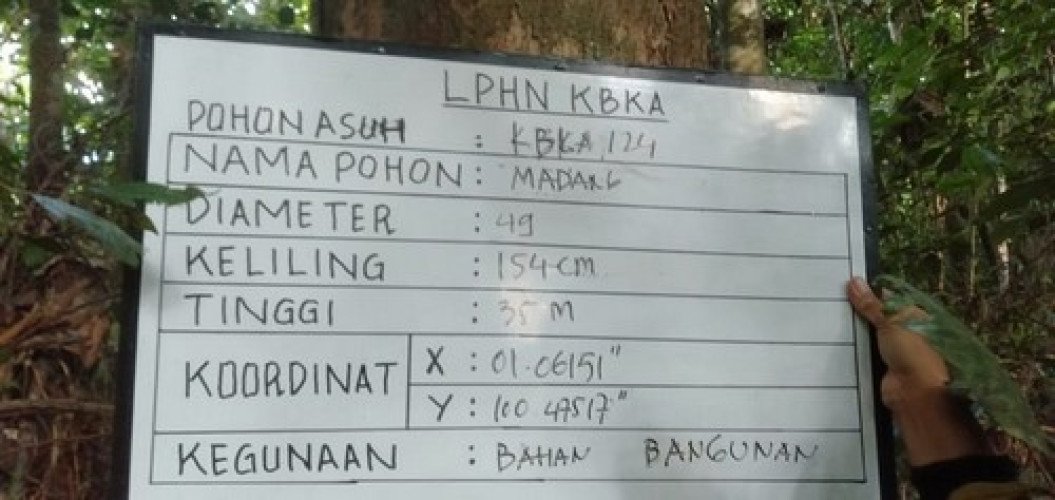 LPHN KBKA
POHON ASUH : KBKA.124
NAMA POHON : MADANG
DIAMETER : 49
KELILING : 154 cm
TINGGI : 35 M
KOORDINAT X : 01.06151"
Y : 100 47517"
KEGUNAAN : BAHAN BANGUNAN